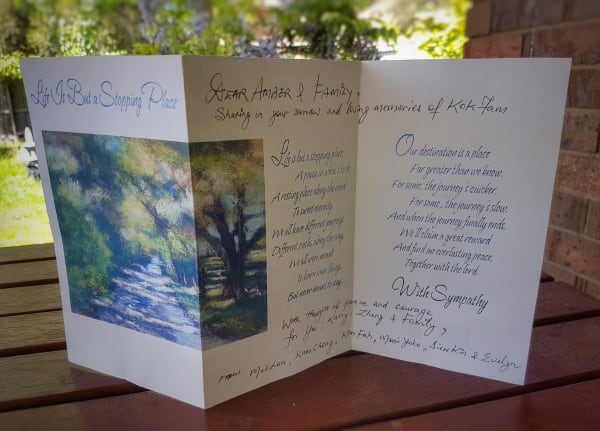 Life Is But a Stopping Place
DEAR AMBER & FAMILY,
Sharing in your sorrow and loving memories of KOK-Fam
Life is but a stopping place,
A pause in what's to be,
A resting place along the road
To sweet eternity.
We all have different journeys,
Different paths along the way,
We all were meant
to learn some things,
But never meant to stay...
Our destination is a place
Far greater than we know.
For some, the journey's quicker,
For some, the journey's slow,
And when the journey finally ends,
We'll claim a great reward
And find an everlasting peace,
Together with the lord.
With Sympathy
With thoughts of peace and courage
for You, Zhang & Family,
FROM: Meidan, Kam Cheng, Kon Fah, Mooi Yoke, Siew Kin & Evelyn